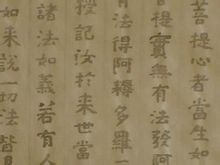 菩提心者當生如
提實無有法發阿
有法得阿耨多羅三
授記汝於來世當
諸法如義若有人
如來說一切法皆是